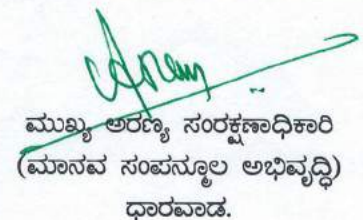 ಮುಖ್ಯ ಅರಣ್ಯ ಸಂರಕ್ಷಣಾಧಿಕಾರಿ
(ಮಾನವ ಸಂಪನ್ಮೂಲ ಅಭಿವೃದ್ಧಿ)
ಧಾರವಾಡ.